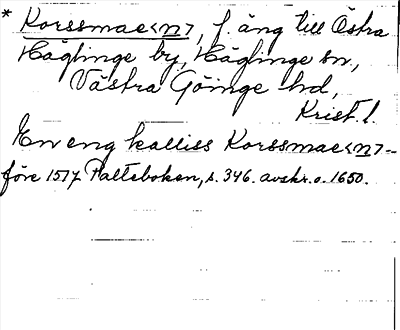 * Korssmae<n>, f. äng till Östra
Häglinge by, Häglinge sn,
Västra Göinge hd,
Krist. l.
En eng kalliss Korssmae<n> -
före 1517 Palteboken, s. 346. avskr. o. 1650.